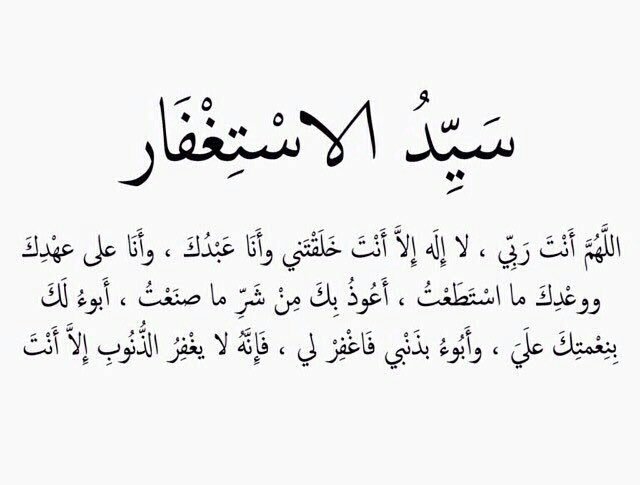 سَيِّدُ الاسْتِغْفَار
اللَّهُمَّ أَنْتَ رَبِّي ، لا إِلَه إِلاَّ أَنْتَ خَلَقْتَني وأَنَا عَبْدُكَ ، وأَنَا على عهْدِكَ
ووعْدِكَ ما اسْتَطَعْتُ ، أَعُوذُ بِكَ مِنْ شَرِّ ما صنَعْتُ ، أَبوءُ لَكَ
بِنِعْمتِكَ علَيَ ، وأَبُوءُ بذَنْبي فَاغْفِرْ لي ، فَإِنَّهُ لا يغْفِرُ الذُّنُوبِ إِلاَّ أَنْتَ